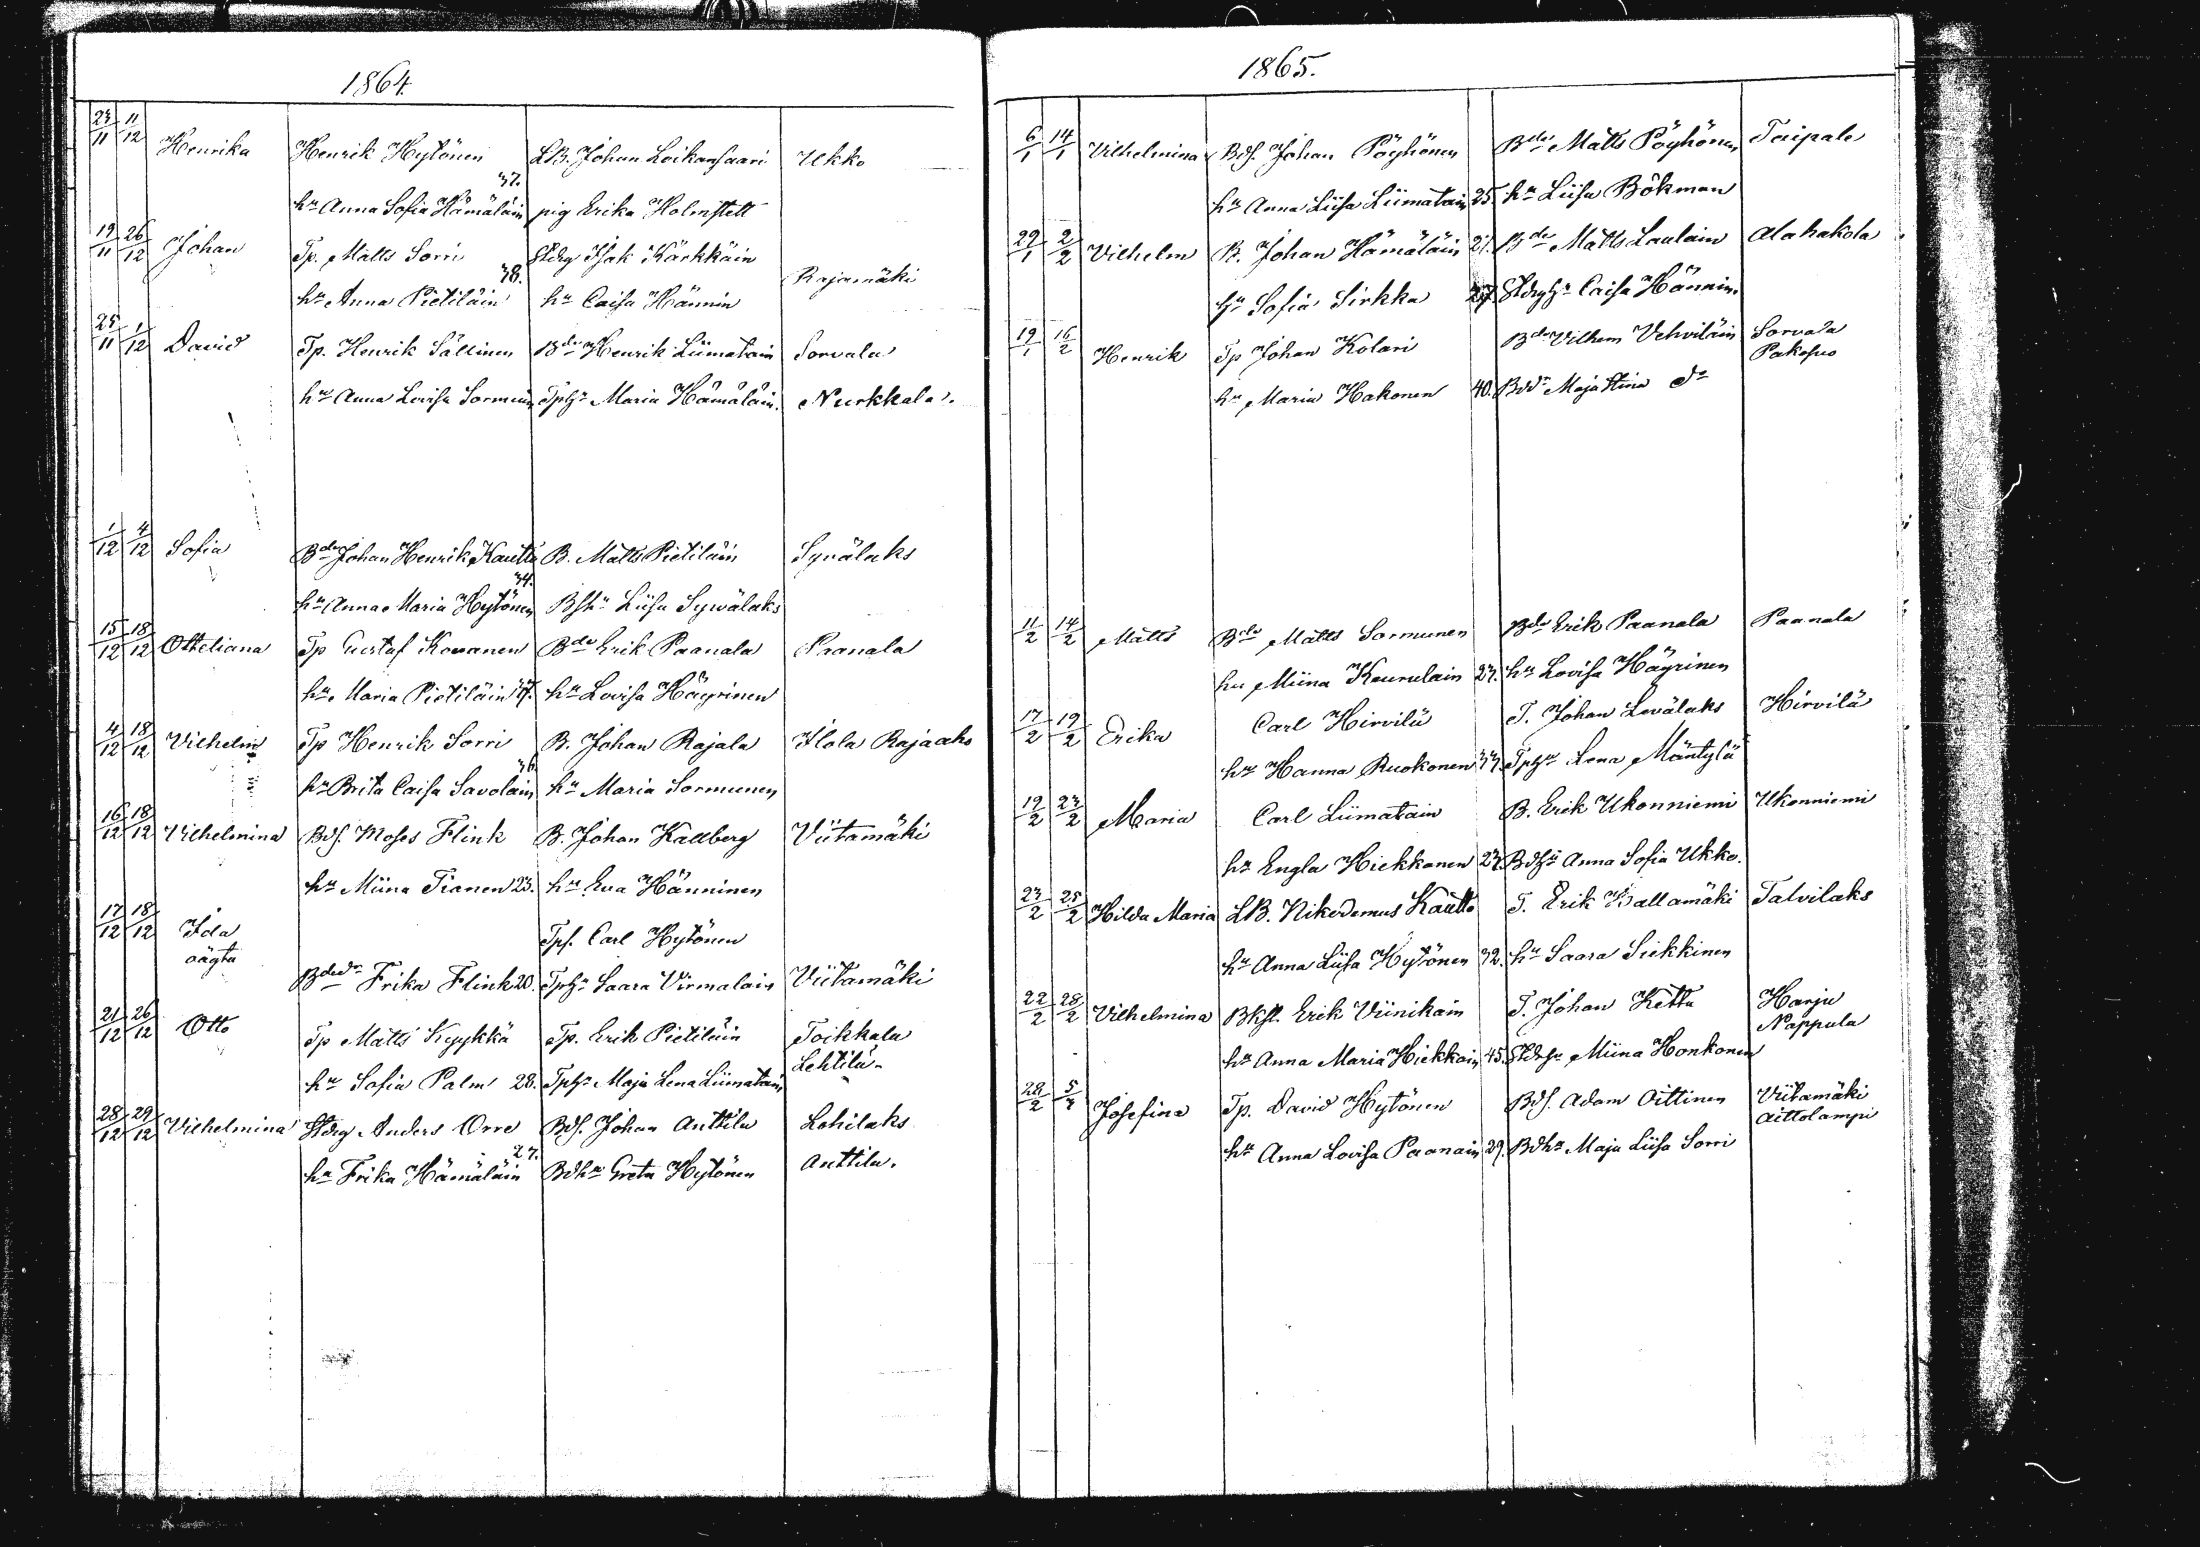 1864.
23/11 11/12 Henrika Henrik Hytönen LB. Johan Loikansaari Ukko
37.
hu Anna Sofia Hämäläin pig Erika Holmstett
19/11 26/12 Johan Tp. Matts Sorri Stdrg Isak Kärkkäin
38. Rajamäki
hu Anna Pietiläin hu Caisa Hännin
25/11 1/12 David Tp. Henrik Sällinen Bde Henrik Liimatain Sorvala
hu Anna Lovisa Sormuin Tphu Maria Hämäläin. Nurkkala.
1/12 4/12 Sofia Bde Johan Henrik Kautto B. Matts Pietiläin Syvälaks
34.
hu Anna Maria Hytönen Bshu Liisa Sywälaks
15/12 18/12 Ottteliana Tp Gustaf Kovanen Bde Erik Paanala Paanala
hu Maria Pietiläin hu Lovisa Häyrinen
4/12 18/12 Vilhelm Tp Henrik Sorri B. Johan Rajala Ilola Rajaaho
36.
hu Brita Caisa Savolain hu Maria Sormunen
16/12 18/12 Vilhelmina Bds. Moses Flink B. Johan Kallberg Viitamäki
hu Miina Tianen 23. hu Eva Hänninen
17/12 18/12 Ida Tps. Carl Hytönen
oägta
Bdedr Frika Flink 20. Tphu Saara Virmalain Viitamäki
21/12 26/12 Otto Tp Matts Kyykkä Tp. Erik Pietiläin Toikkala
Lehtilä
hu Sofia Palm 28. Tphu Maja Lena Liimatain
28/12 29/12 Vilhelmina Stdrg Anders Orre Bds. Johan Anttila Lohilaks
27.
hu Frika Hämäläin Bdhu Greta Hytönen Anttila.
1865.
6/1 14/1 Vilhelmina Bds. Johan Pöyhönen Bde Matts Pöyhönen Taipale
hu Anna Liisa Liimatain 25. hu Liisa Bökman
29/1 2/2 Vilhelm B. Johan Hämäläin 21. Bde Matts Laulain Alahakola
hu Sofia Sirkka 27. Stdrghu Caisa Hännin.
19/1 16/2 Henrik Tp Johan Kolari Bde Vilhem Vehviläin Sorvala
Pakosuo
hu Maria Hakonen 40. Bddr Maja Stina do
11/2 14/2 Matts Bde Matts Sormunen Bde Erik Paanala Paanala
hu Miina Kaurulain 27. hu Lovisa Häyrinen
17/2 19/2 Erika Carl Hirvilä T. Johan Levälaks Hirvilä
hu Hanna Ruokonen 33. Tphu Lena Mäntylä
19/2 23/2 Maria Carl Liimatain B. Erik Ukonniemi Ukonniemi
hu Engla Hiekkanen 23. Bdhu Anna Sofia Ukko.
23/2 25/2 Hilda Maria LB. Nikodemus Kautto T. Erik Kallamäki Talvilaks
hu Anna Liisa Hytönen 32. hu Saara Siekkinen
22/2 28/2 Vilhelmina Bkfl. Erik Viinikain T. Johan Kettu Harju
Nappula
hu Anna Maria Hiekkain 45. Stdrhu Miina Honkonen
28/2 5/3 Josefina Tp. David Hytönen Bds. Adam Oittinen Viitamäki
Aittolampi
hu Anna Lovisa Paanain 29. Bdhu Maja Liisa Sorri